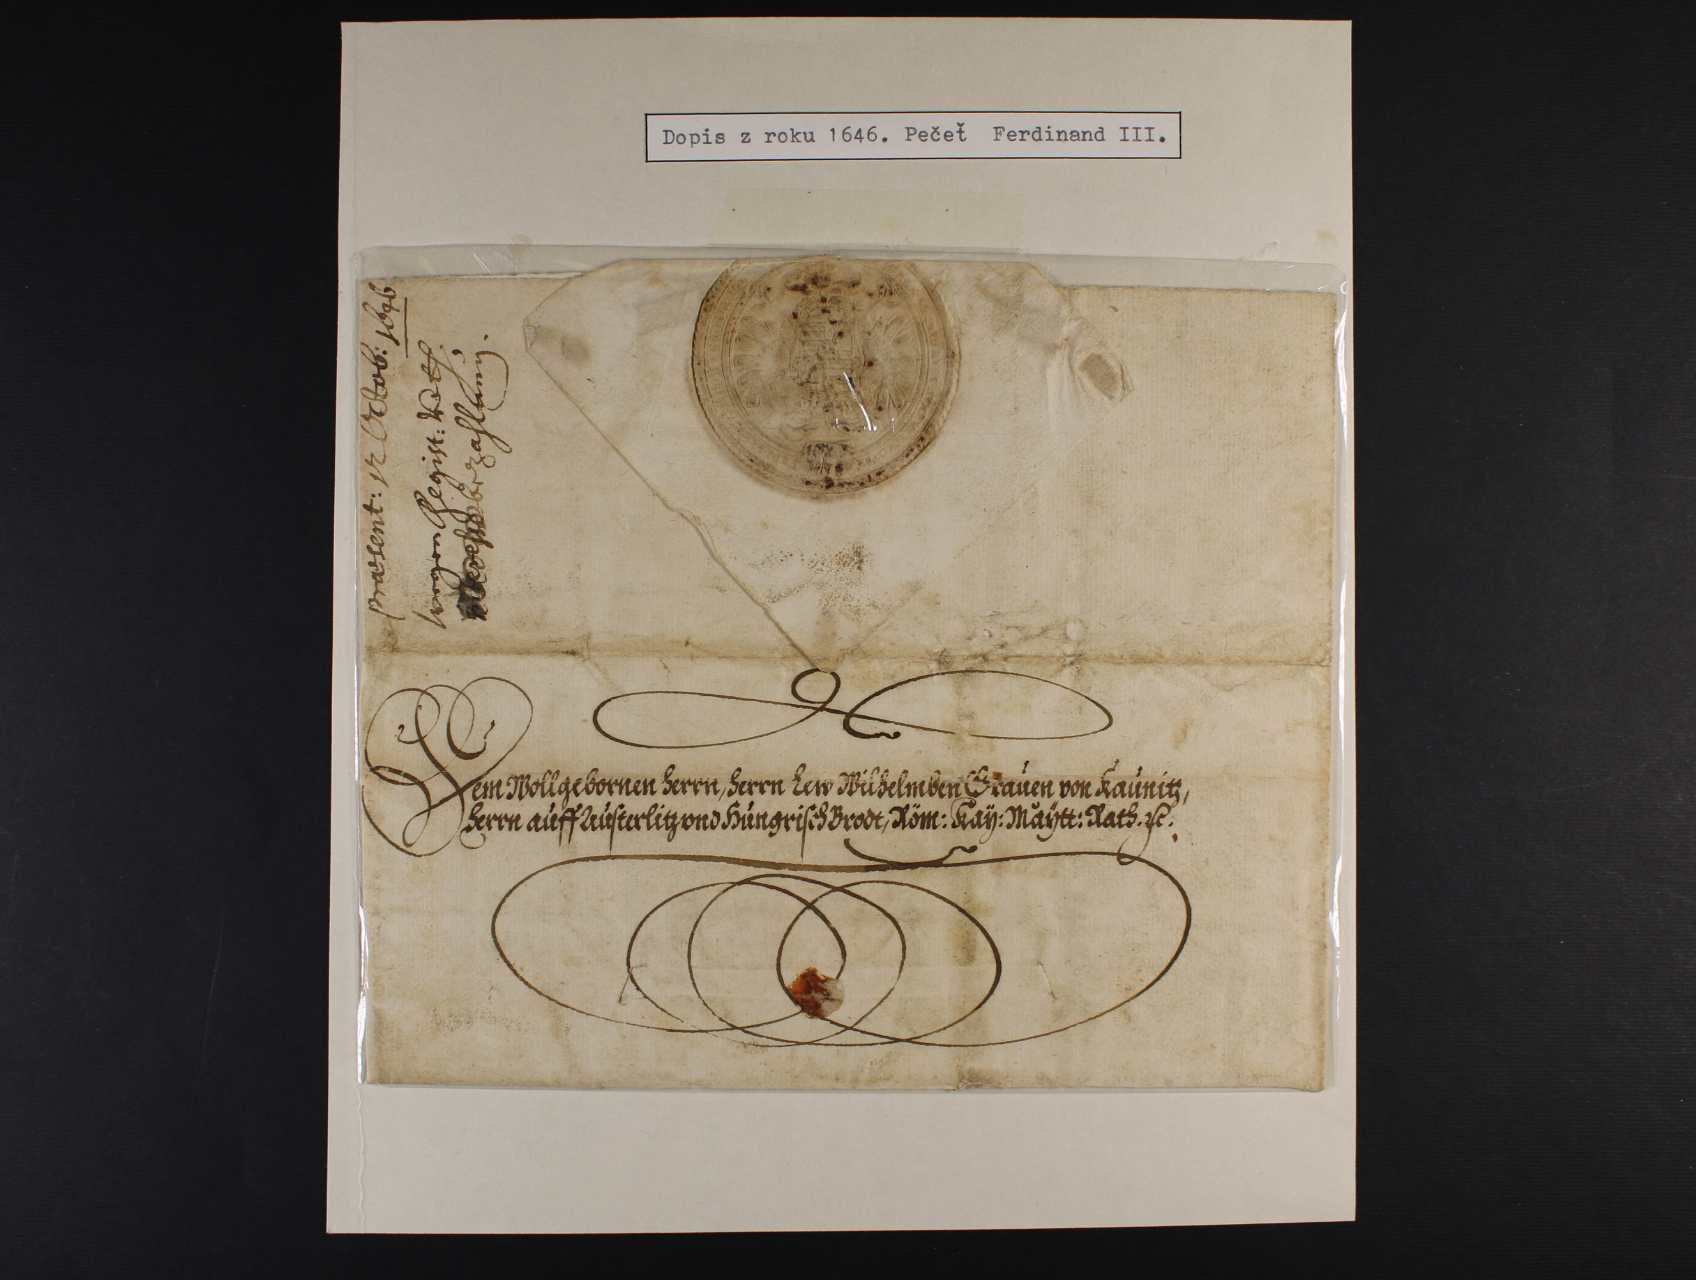 Dopis z roku 1646. Pečeť Ferdinand III.
præsent: 12 Octob: 1646
wegen Regist:
bezahlung.
Dem Wollgebornen Herrn, Herrn Lew Wilhelmben Grauen von Kaunitz,
Herrn auff Austerlitz vnd Hungrisch Brodt, Röm: Kay: Maytt: Rath. ꝛc.